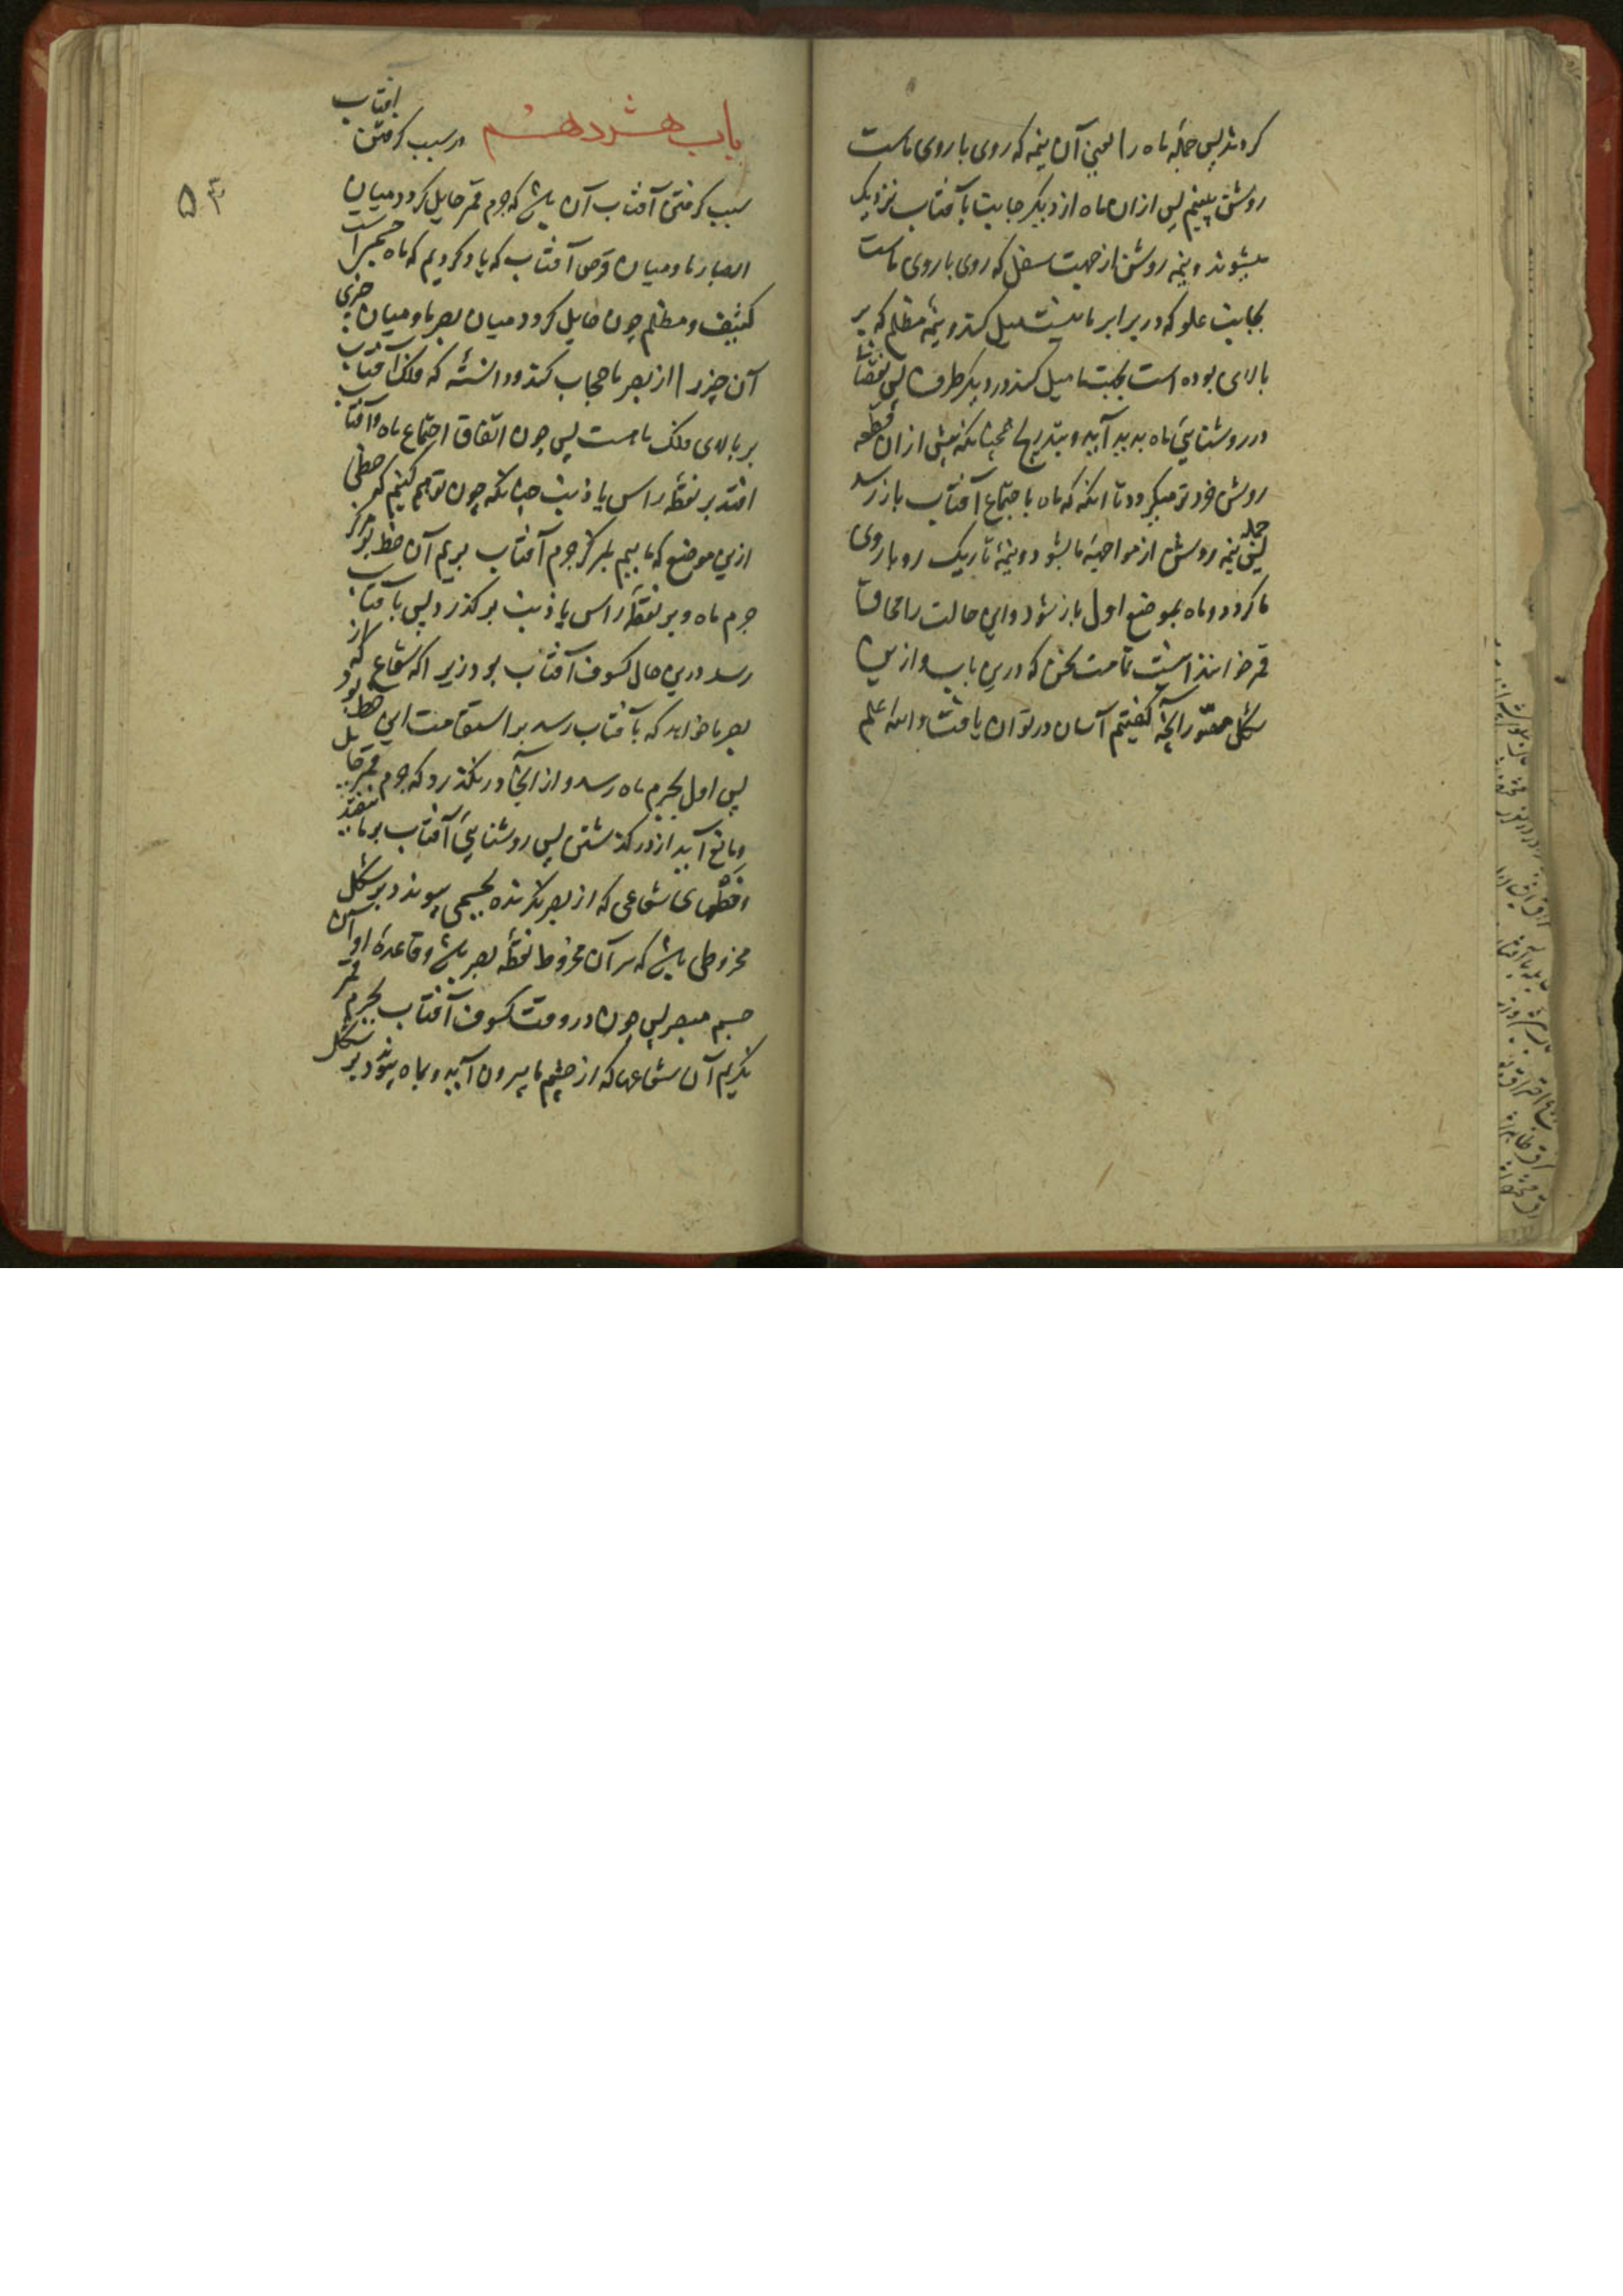 کردند پس جمله ماه را یعنی آن نیمه که روی با روی ماست
روشن بینیم پس ازان ماه از دیگر جانب بآفتاب نزدیک
میشود و نیمه روشن از جهت سفل که روی با روی ماست
بجانب علو که در برابر ما نیست میل کند و نیمه مظلم که بر
بالای بوده است بجهت ما میل کند و در دیگر طرف پس نقصان
در روشنایی ماه پدید آید و بتدریج همچنانکه پیش ازان قطعه
روشن خردتر میگردد تا آنکه که ماه باجتماع آفتاب باز رسد
یعنی نیمه روشن از مواجهه ما بشود و نیمه تاریک رو با روی جمله
ما گردد و ماه بموضع اول باز شود و این حالت را محاق
قمر خوانند اینست تمامت سخن که درین باب و ازین
شکل مصور آنچه گفتیم آسان در توان یافت والله اعلم
باب هشردهم در سبب گرفتن آفتاب
۵۳
سبب گرفتن آفتاب آن باشد که جرم قمر حایل گردد میان
ابصار ما و میان قرص آفتاب که یاد کردیم که ماه جسمیست
کثیف و مظلم چون حایل گردد میان بصر ما و میان چیزی
آن چیز را از بصر ما حجاب کند و دانسته که فلک آفتاب
بر بالای فلک ماه است پس چون اتفاق اجتماع ماه و آفتاب
افتد بر نقطه راس یا ذنب چنانکه چون توهم کنیم که خطی
ازین موضع که ماییم بمرکز جرم آفتاب بریم آن خط بر مرکز
جرم ماه و بر نقطه راس یا ذنب بر گذرد پس بآفتاب
رسد درین حال کسوف آفتاب بود زیرا که شعاع که از
بصر ما خواهد که بآفتاب رسد بر استقامت این خط بود
پس اول بجرم ماه رسد و از آنجا در نگذرد که جرم قمر حایل
و مانع آید از در گذشتن پس روشنایی آفتاب بر ما نیفتد
و خطهای شعاعی که از بصر نگرنده بجسمی پیوندد بر شکل
مخروطی باشد که سر آن مخروط نقطه بصر باشد و قاعده او آن
جسم مبصر پس چون در وقت کسوف آفتاب بجرم قمر
نگریم آن شعاعها که از چشم ما بیرون آید و بماه پیوندد بر شکل